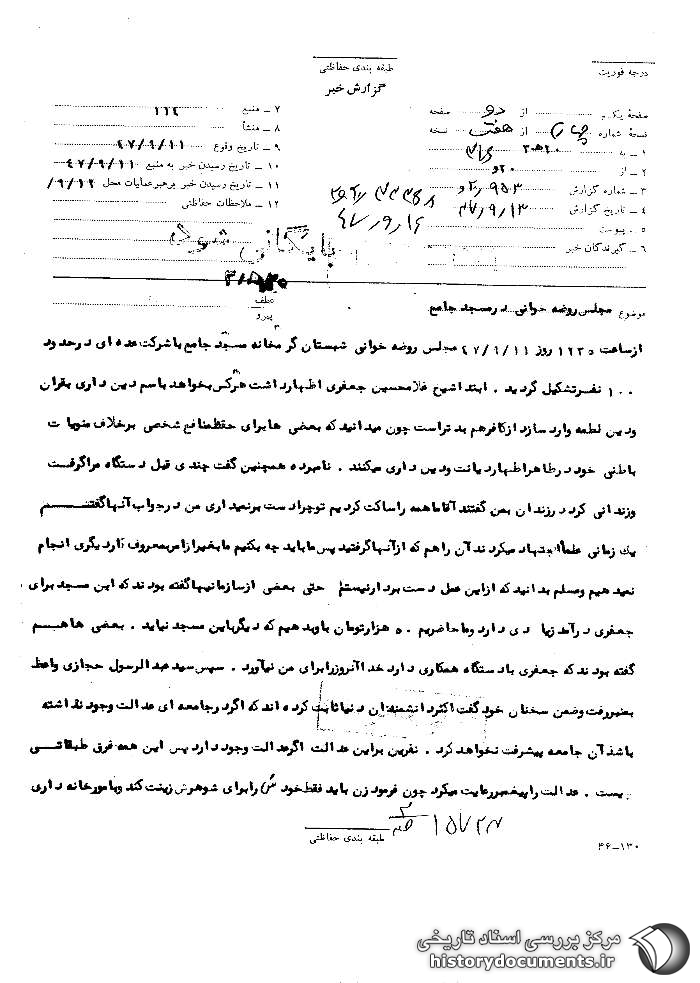 درجه فوریت
طبقه بندی حفاظتی
گزارش خبر
صفحه یک از دو صفحه
نسخه شماره چهار از هفت نسخه
۱ ـ به ۳۱۶
۲ ـ از ۲۰ه
۳ ـ شماره گزارش
۴ ـ تاریخ گزارش ۴۷/۹/۱۳
۵ ـ پیوست
۶ ـ گیرندگان خبر
۷ ـ منبع
۸ ـ منشأ
۹ ـ تاریخ وقوع ۴۷/۹/۱۱
۱۰ ـ تاریخ رسیدن خبر به منبع ۴۷/۹/۱۱
۱۱ ـ تاریخ رسیدن خبر برهبر عملیات محل ۹/۱۲/
۱۲ ـ ملاحظات حفاظتی
۴۷/۹/۱۶
بایگانی شود
عطف
پیرو
موضوع مجلس روضه خوانی در مسجد جامع
از ساعت ۱۲۳۰ روز ۴۷/۹/۱۱ مجلس روضه خوانی شبستان گرمخانه مسجد جامع با شرکت عده ای در حدود
۱۰۰ نفر تشکیل گردید . ابتدا شیخ غلامحسین جعفری اظهار داشت هرکس بخواهد باسم دین داری بقران
ودین لطمه وارد سازد از کافرهم بدتر است چون میدانید که بعضی ها برای حفظ منافع شخصی برخلاف منویات
باطنی خود در ظاهر اظهار دیانت ودین داری میکنند . نامبرده همچنین گفت چندی قبل دستگاه مرا گرفت
وزندانی کرد در زندان بمن گفتند آقا ما همه را ساکت کردیم تو چرا دست برنمیداری من در جواب آنها گفتم
یک زمانی علما اجتهاد میکردند آن را هم که از آنها گرفتید پس ما باید چه بکنیم ما بغیر از امربمعروف کار دیگری انجام
نمیدهیم ومسلم بدانید که از این عمل دست بردار نیستم حتی بعضی از سازمانیها گفته بودند که این مسجد برای
جعفری درآمد زیادی دارد وما حاضریم ۵۰ هزارتومان باو بدهیم که دیگر باین مسجد نیاید . بعضی ها هم
گفته بودند که جعفری با دستگاه همکاری دارد خدا آنروز را برای من نیآورد . سپس سید عبدالرسول حجازی واعظ
بمنبر رفت وضمن سخنان خود گفت اکثر دانشمندان دنیا ثابت کرده اند که اگر در جامعه ای عدالت وجود نداشته
باشد آن جامعه پیشرفت نخواهد کرد . نفرین براین عدالت اگر عدالت وجود دارد پس این همه فرق طبقاتی
چیست . عدالت را پیغمبر رعایت میکرد چون فرمود زن باید فقط خودش را برای شوهرش زینت کند و بامور خانه داری
طبقه بندی حفاظتی
۴۶-۱۳۰
مرکز بررسی اسناد تاریخی
historydocuments.ir